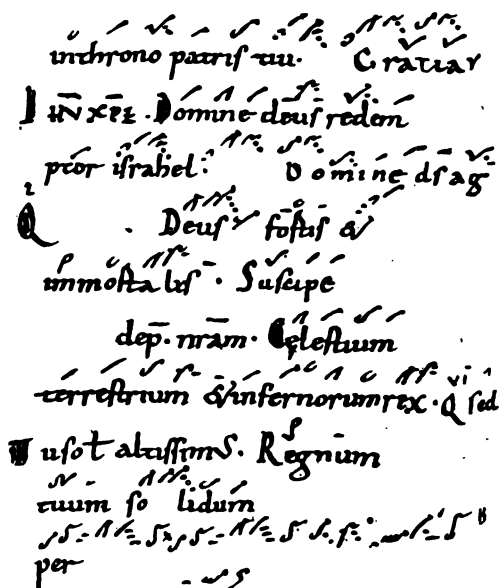 inthrono patris tui. Gratiar
IHN XPE. Domine deus redem
ptor israhel: Domine ds ag
Q . Deus fortis &
immortalis. Suscipe
dep. nram. Celestium
terrestrium & infernorum rex. Q sed
u sol altissimus. Regnum
tuum so lidum
per